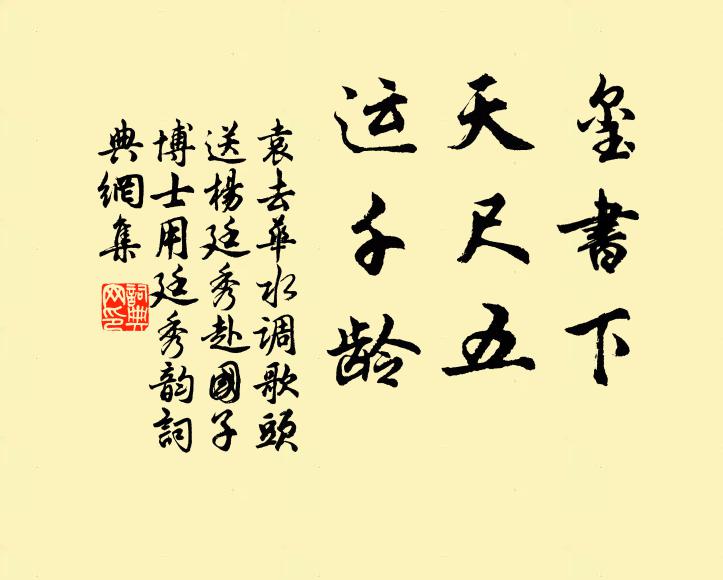 玺書下
天尺五
运千龄
袁去華水调歌頭
送楊廷秀赴國子
博士用廷秀韵詞
典網集
詞典网印